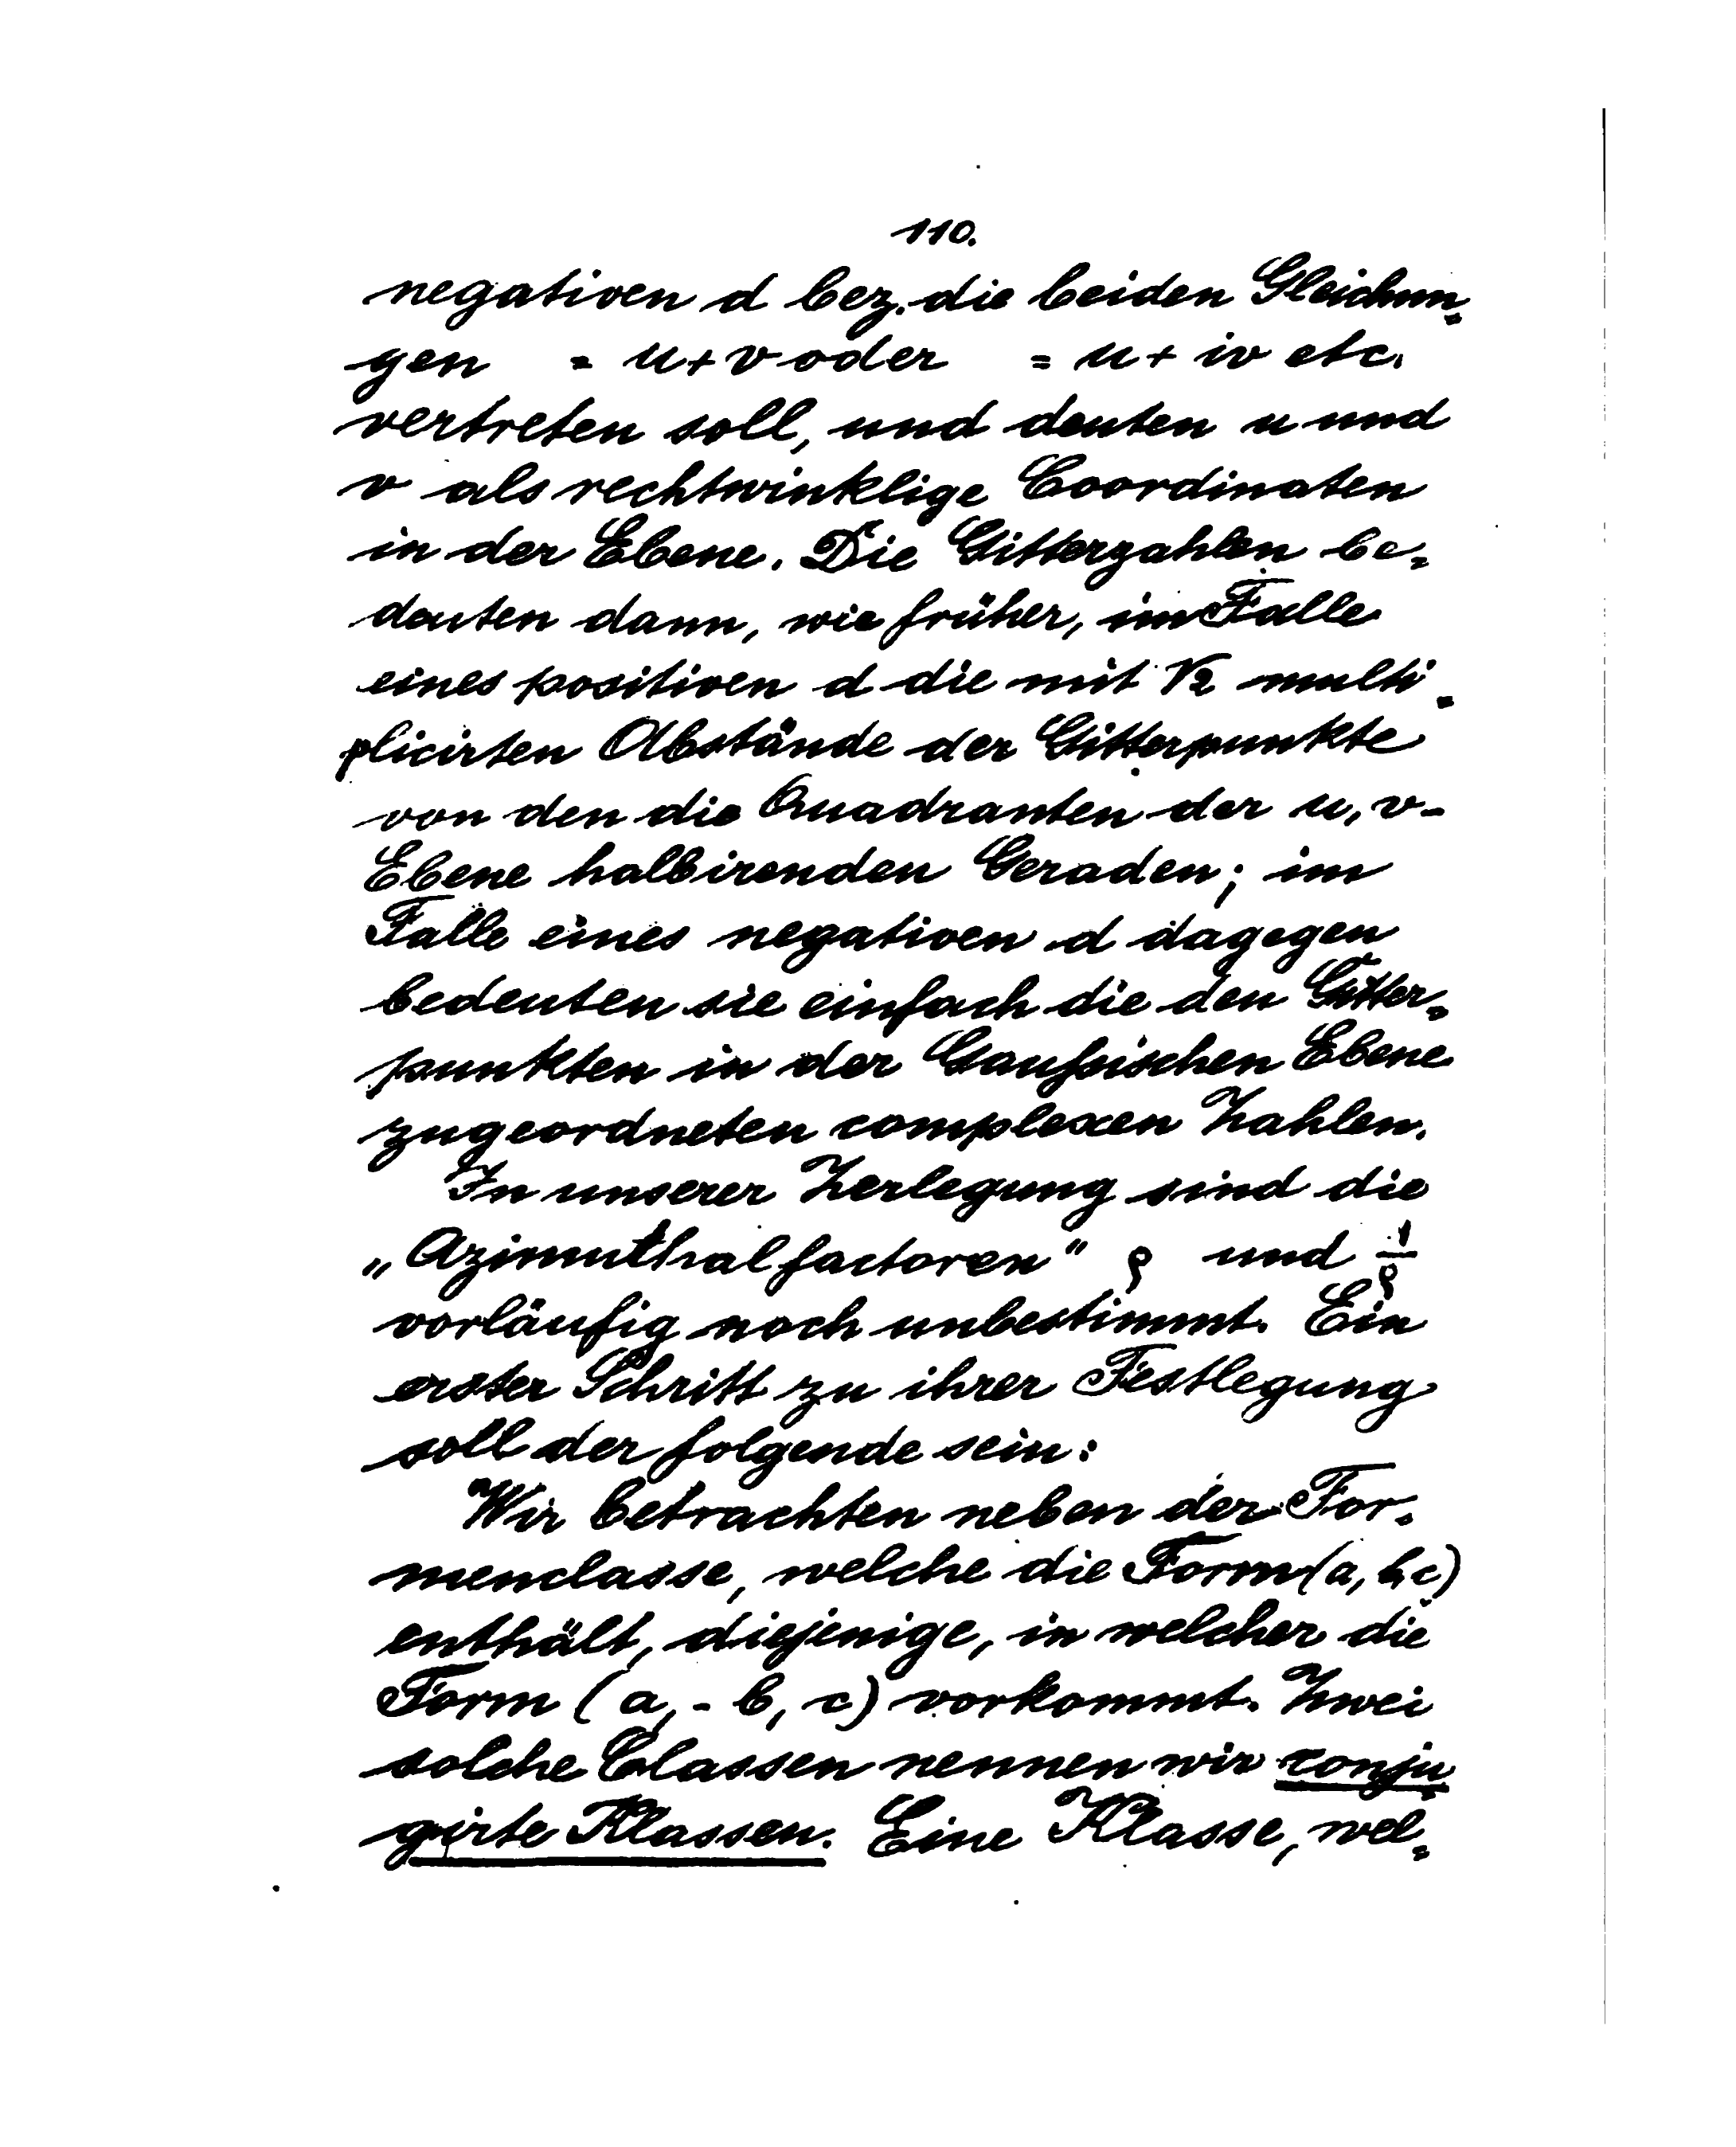 110.
negativen d bez. die beiden Gleichun-
gen = u + v oder = u + iv etc.
vertreten soll, und deuten u und
v als rechtwinklige Coordinaten
in der Ebene. Die Gitterzahlen be-
deuten dann, wie früher, im Falle
eines positiven d die mit √2 multi-
plicirten Abstände der Gitterpunkte
von den die Quadranten der u, v-
Ebene halbirenden Geraden; im
Falle eines negativen d dagegen
bedeuten sie einfach die den Gitter-
punkten in der Gaußischen Ebene
zugeordneten complexen Zahlen.
In unserer Zerlegung sind die
„Azimuthalfactoren" ρ und 1/ρ
vorläufig noch unbestimmt. Ein
erster Schritt zu ihrer Festlegung
soll der folgende sein:
Wir betrachten neben der For-
menclasse, welche die Form (a, b, c)
enthält, diejenige, in welcher die
Form (a, - b, c) vorkommt. Zwei
solche Classen nennen wir conju-
girte Klassen. Eine Klasse, wel-